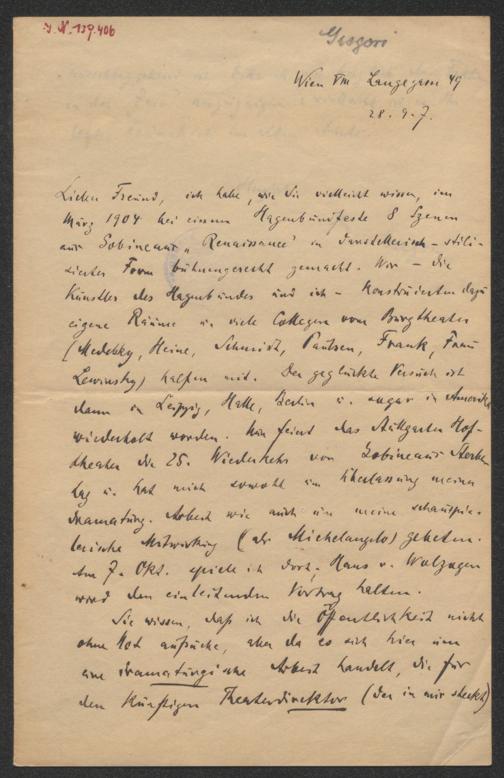 J. N. 139.406
Gregori
Wien VIII Langegasse 49
28. 9. 7.
Lieber Freund, ich habe, wie Sie vielleicht wissen, im
März 1904 bei einem Hagenbundfeste 8 Szenen
aus Gobineaus „Renaissance" in darstellerisch-stili-
sierter Form bühnengerecht gemacht. Wir – die
Künstler des Hagenbundes und ich – konstruierten dazu
eigene Räume u. viele Collegen vom Burgtheater
(Medelsky, Heine, Schmidt, Paulsen, Frank, Frau
Lewinsky) halfen mit. Der geglückte Versuch ist
dann in Leipzig, Halle, Berlin u. sogar in Amerika
wiederholt worden. Nun feiert das Stuttgarter Hof-
theater die 25. Wiederkehr von Gobineaus Sterbe-
tag u. hat mich sowohl um Überlassung meiner
dramaturg. Arbeit wie auch um meine schauspie-
lerische Mitwirkung (als Michelangelo) gebeten.
Am 7. Okt. spiele ich dort; Hans v. Wolzogen
wird den einleitenden Vortrag halten.
Sie wissen, daß ich die Öffentlichkeit nicht
ohne Not aufsuche, aber da es sich hier um
eine dramaturgische Arbeit handelt, die für
den künftigen Theaterdirektor (der in mir steckt)